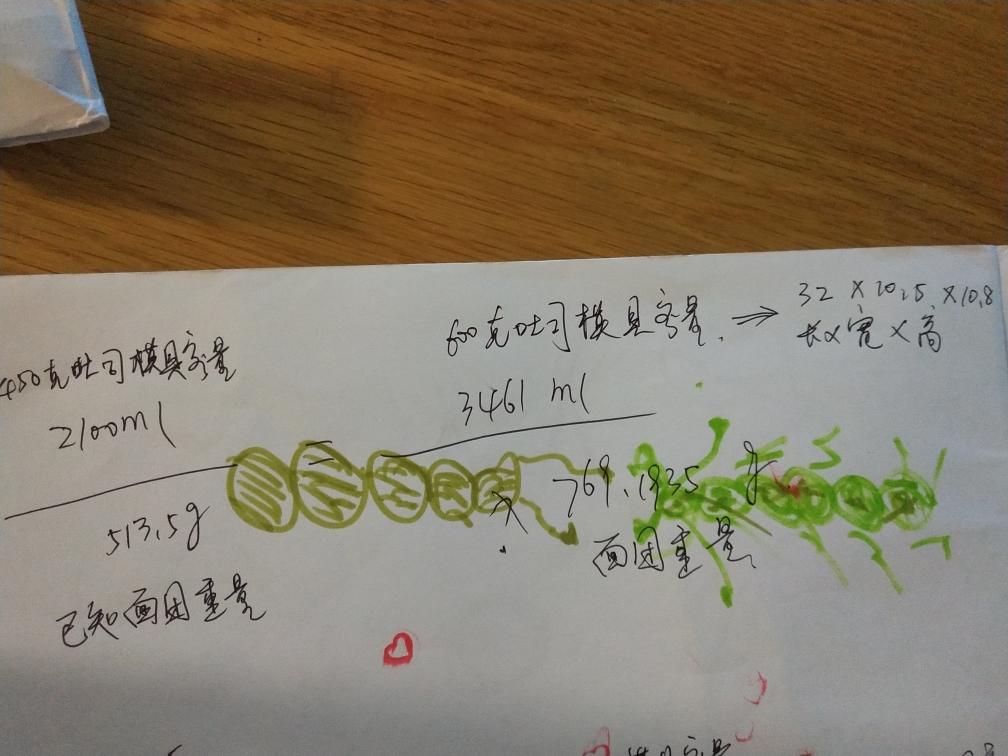 450克吐司模具容量
2100ml
513.5g
已知面团重量
=
600克吐司模具容量. ⇒ 32 × 10.5 × 10.8
长×宽×高
3461 ml
x 769.1935 g
面团重量